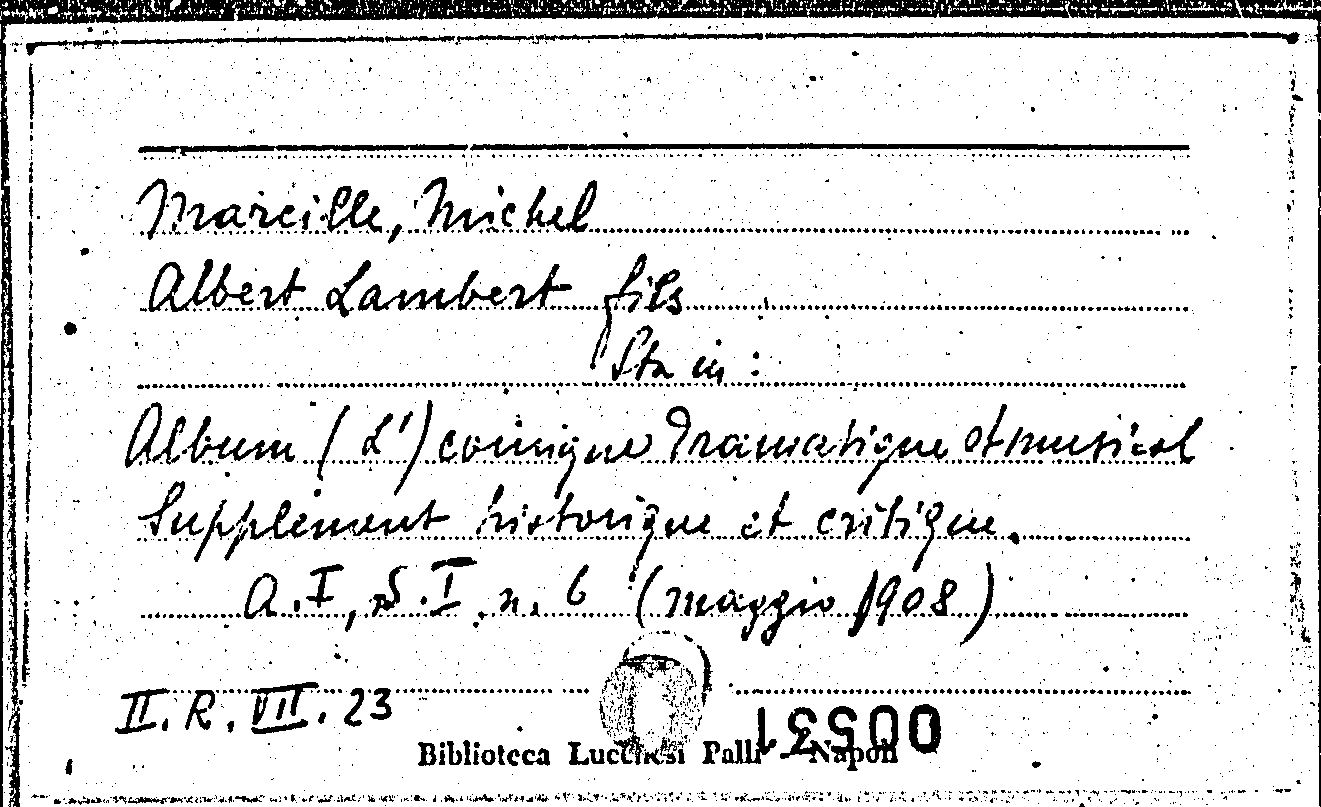 Mareille, Michel
Albert Lambert fils
Sta in :
Album (L') comique dramatique et musical
Supplément historique et critique.
A. I, S. I. n. 6 (maggio 1908)
II. R. VII. 23
00531
Biblioteca Lucchesi Palli - Napoli